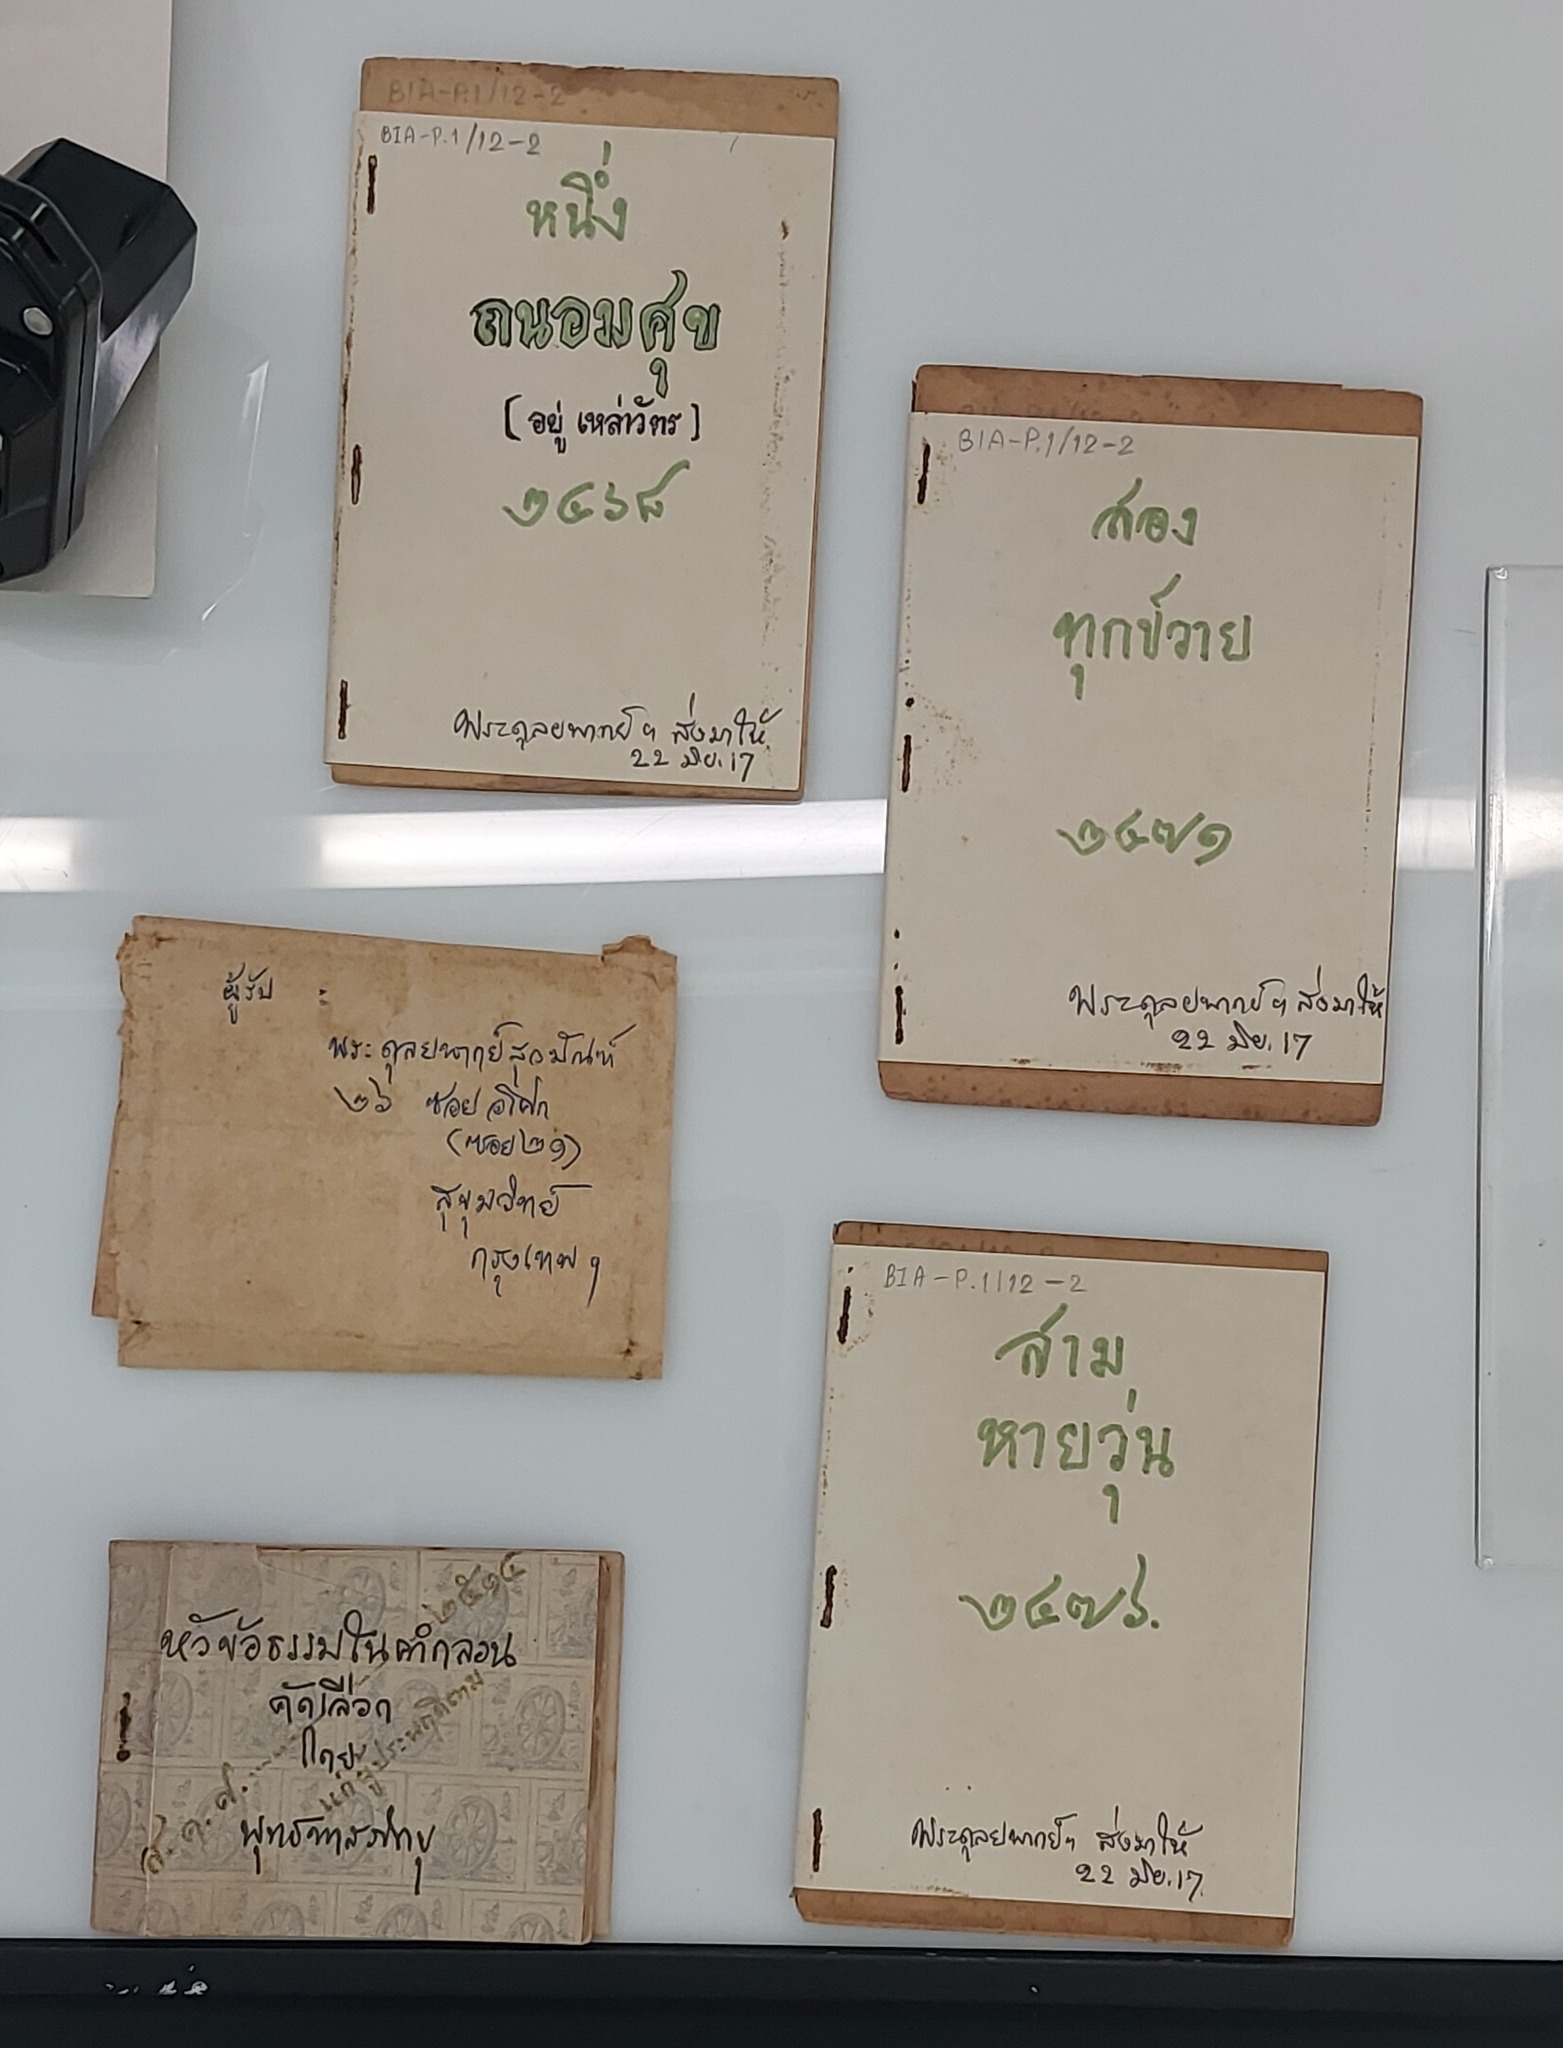 BIA-P.1/12-2
BIA-P.1/12-2
หนึ่ง
ถนอมศุข
(อยู่ เหล่าวัตร)
๒๔๖๘
พระดุลยพากย์ฯ ส่งมาให้
22 มิย. 17
BIA-P.1/12-2
สอง
ทุกข์วาย
๒๔๗๑
พระดุลยพากย์ฯ ส่งมาให้
22 มิย. 17
ผู้รับ :
พระดุลยพากย์สุวมัณฑ์
๒๖ ซอยอโศก
(ซอย ๒๑)
สุขุมวิทย์
กรุงเทพฯ
BIA-P.1/12-2
สาม
หายวุ่น
๒๔๗๖.
พระดุลยพากย์ฯ ส่งมาให้
22 มิย. 17
หัวข้อธรรมในคำกลอน
คัดเลือก
โดย
พุทธทาสภิกขุ
ส.ค.ส. ๒๕๑๔
แก่ผู้ประพฤติตาม